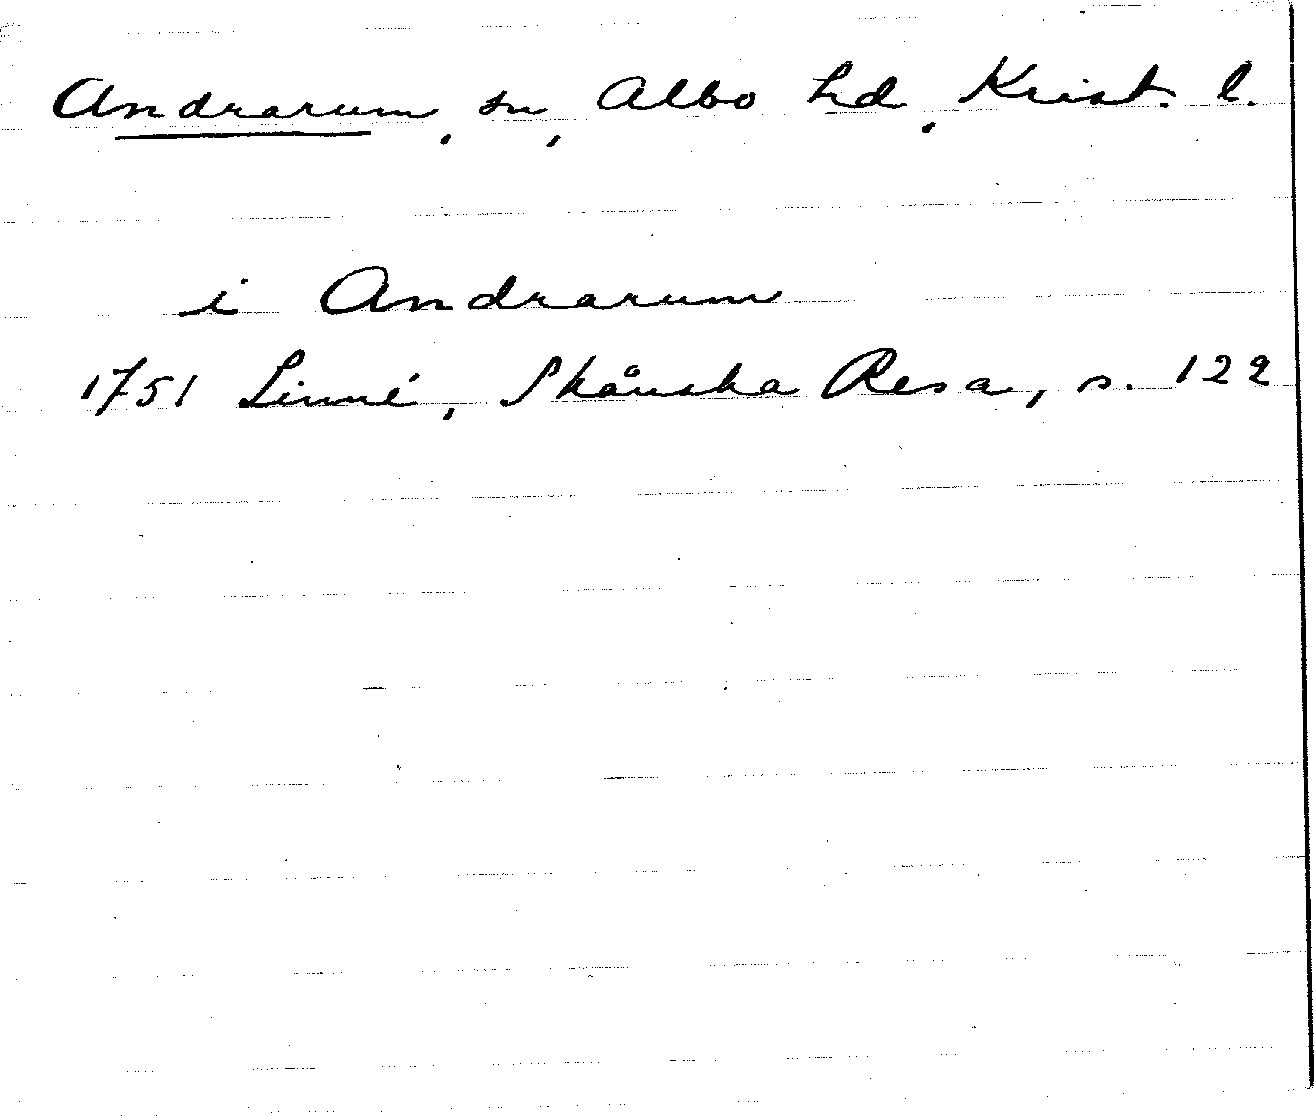 Andrarum, sn, Albo hd, Krist. l.
i Andrarum
1751 Linné, Skånska Resa, s. 122